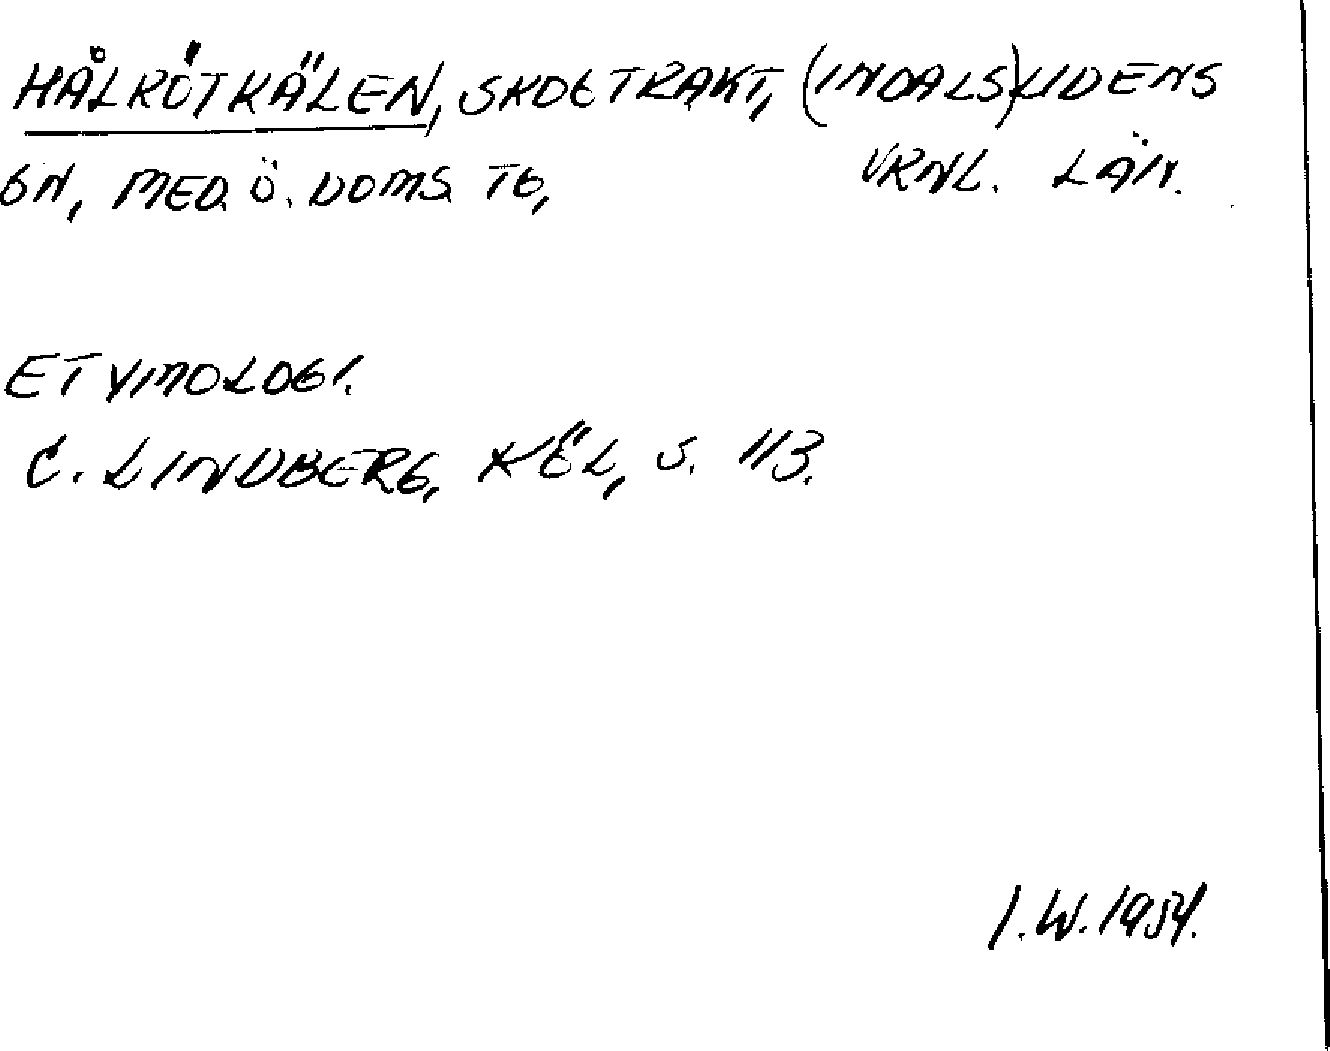 HÅLRÖTKÄLEN, SKOGTRAKT, (INDALS)LIDENS
GN, MED. Ö. DOMS. TG, VRNL. LÄN.
ETYMOLOGI.
C. LINDBERG, KÖL, S. 113.
I. W. 1954.